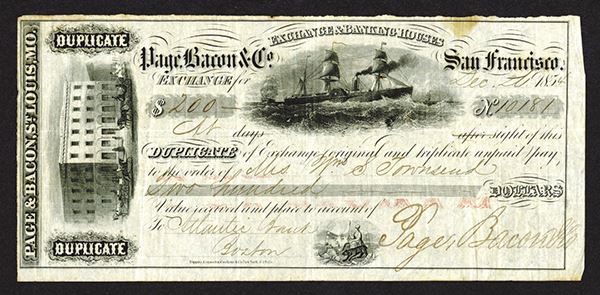 PAGE & BACON, ST. LOUIS, MO.
DUPLICATE
DUPLICATE
EXCHANGE & BANKING HOUSES
Page, Bacon & Co.
San Francisco,
EXCHANGE for
Dec. 1854
$ 200
No 10181
At days after sight of this
DUPLICATE of Exchange, original and triplicate unpaid, pay
to the order of Wm S Townsend
Two hundred DOLLARS
Value received and place to account of
To Atlantic Bank
Boston
Page, Bacon & Co